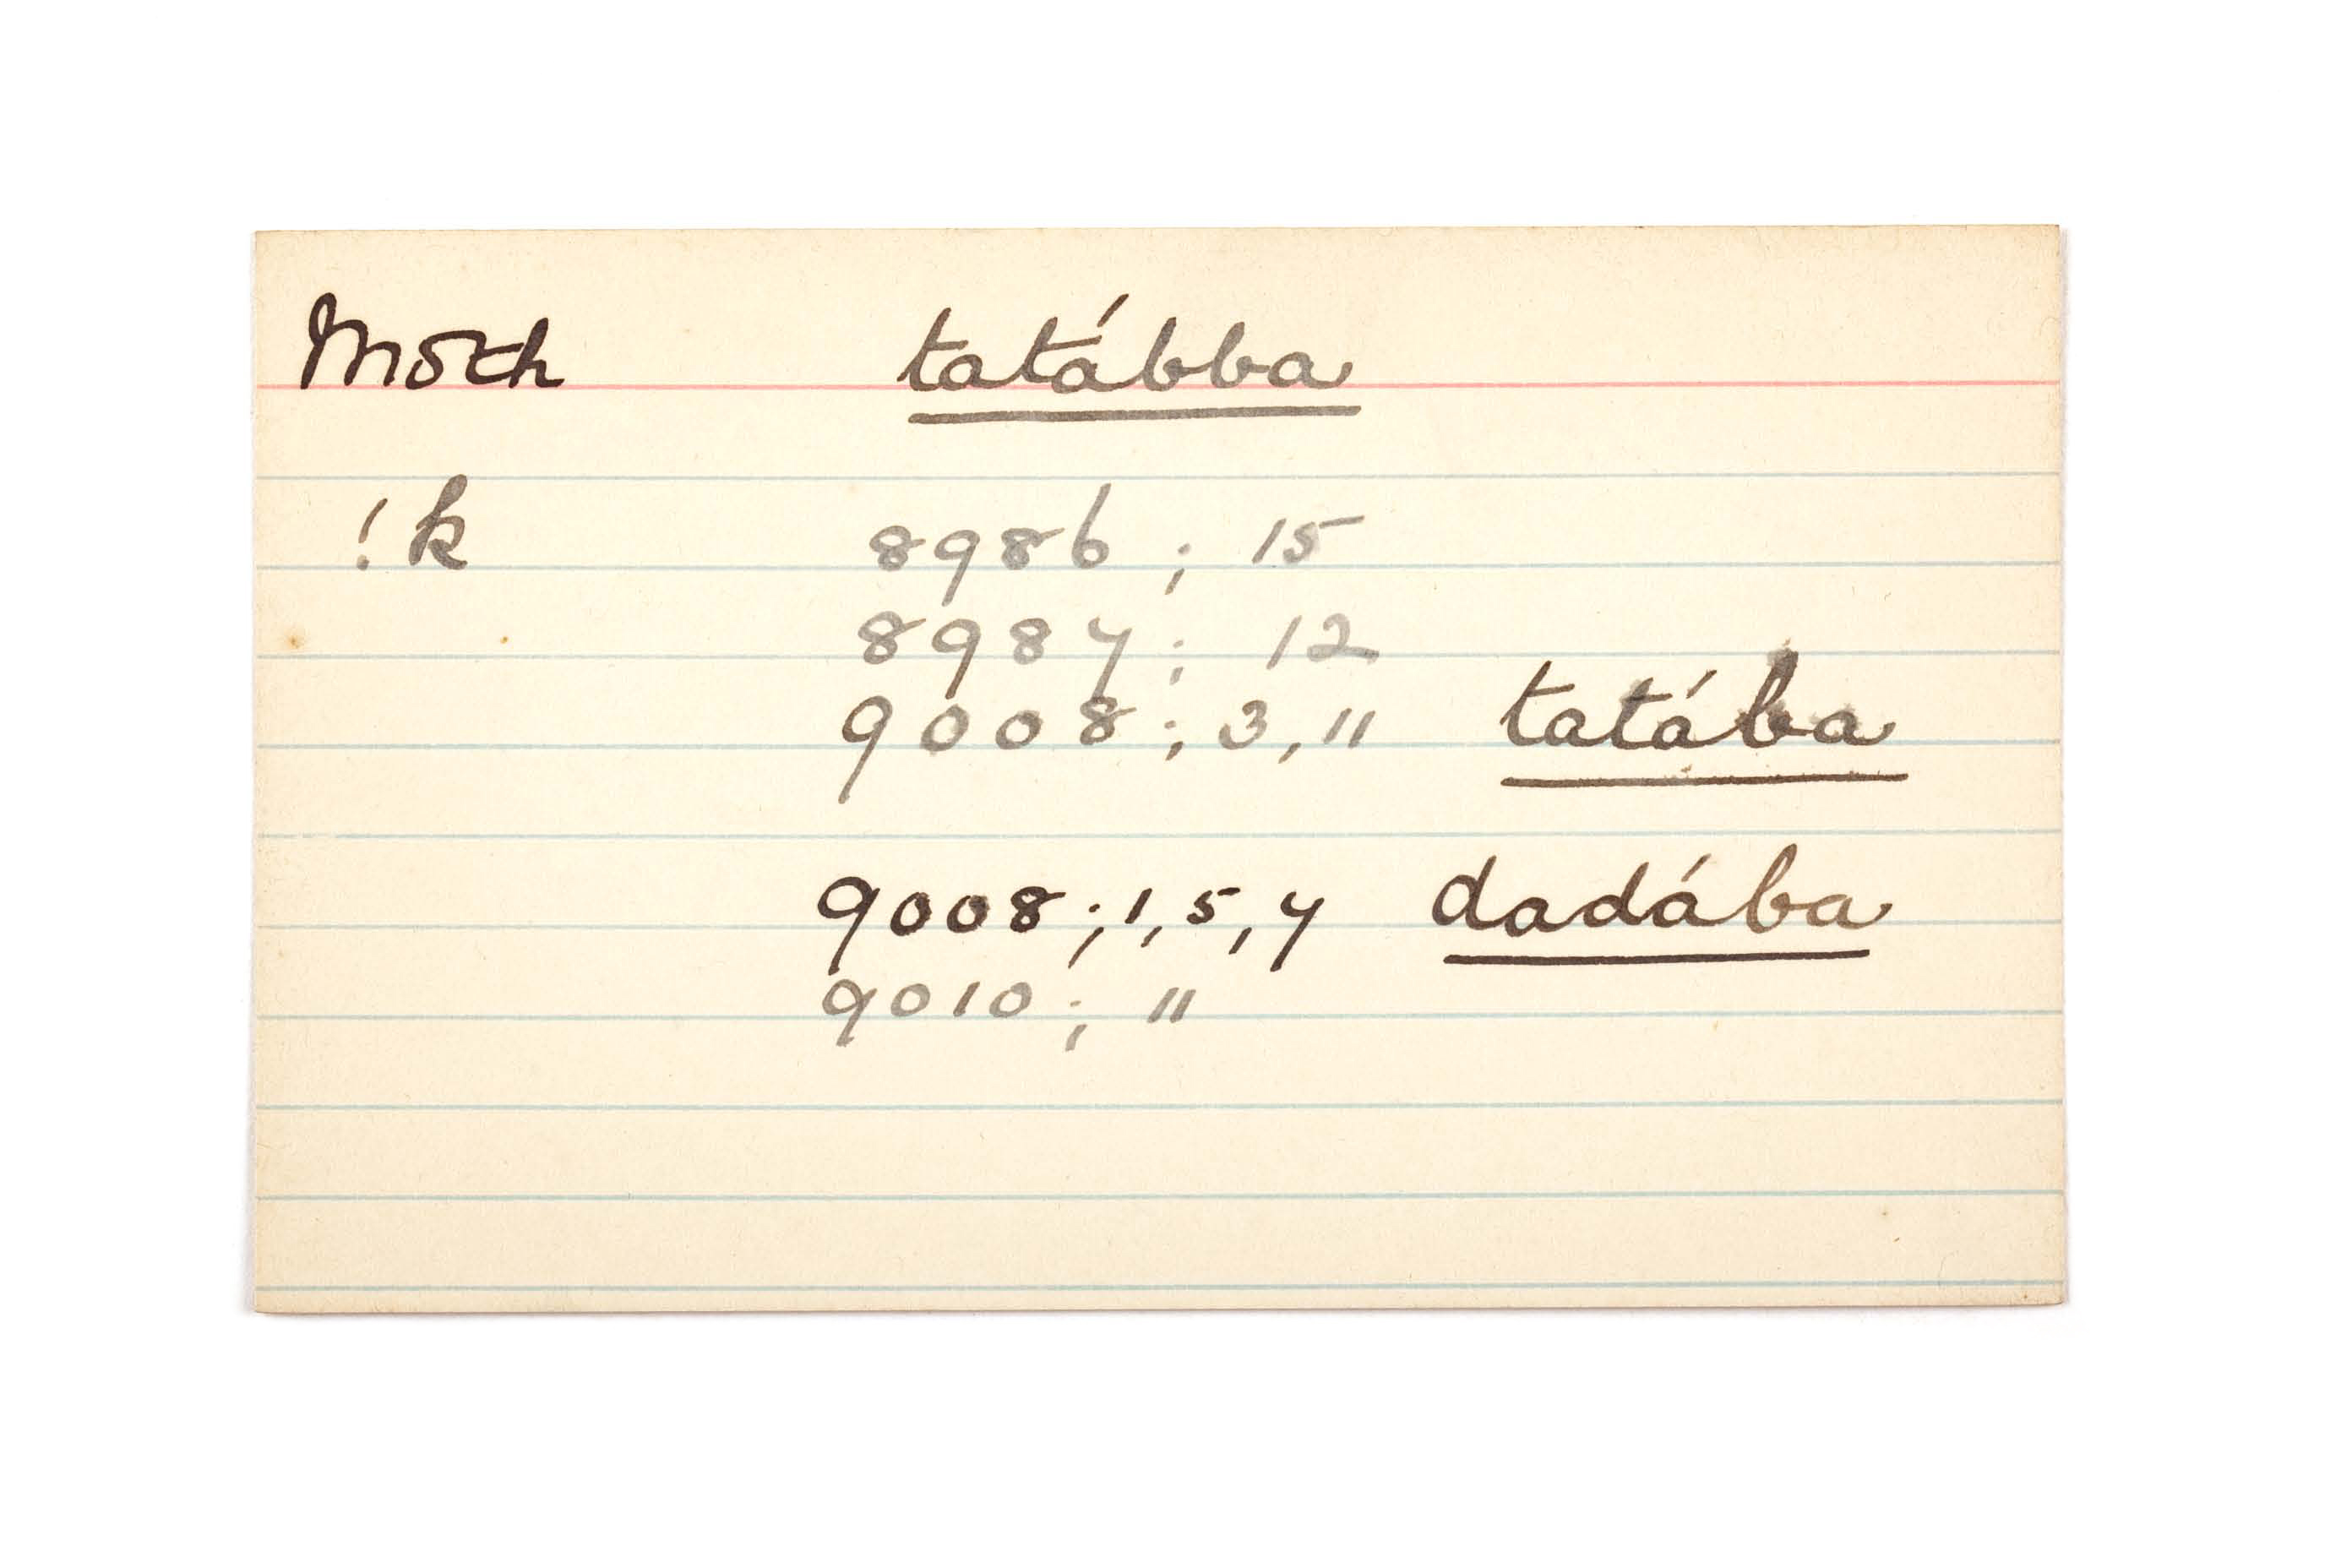 Moth tatábba
!k 8986 ; 15
8987 ; 12
9008 ; 3, 11 tatába
9008 ; 1, 5, 7 dadába
9010 ; 11